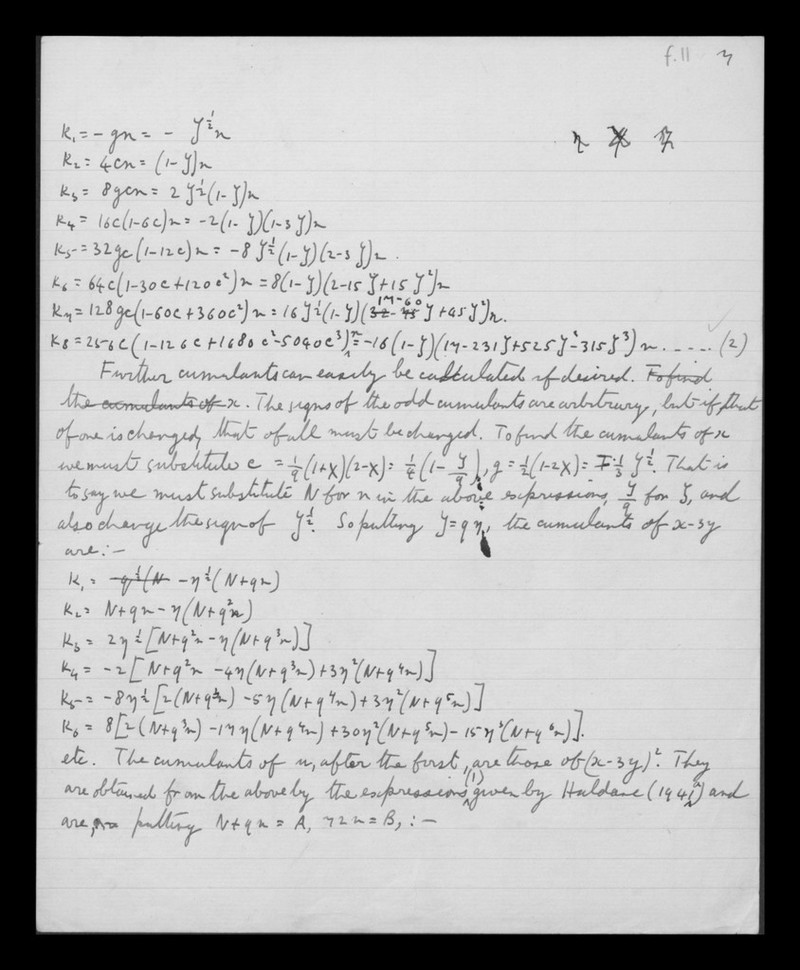 f.11 7
κ₁ = - gn = - ζ^½ n
κ₂ = 4cn = (1-ζ)n
κ₃ = 8gcn = 2ζ^½(1-ζ)n
κ₄ = 16c(1-6c)n = -2(1-ζ)(1-3ζ)n
κ₅ = 32gc(1-12c)n = -8ζ^½(1-ζ)(2-3ζ)n.
κ₆ = 64c(1-30c+120c²)n = 8(1-ζ)(2-15ζ+15ζ²)n
κ₇ = 128gc(1-60c+360c²)n = 16ζ^½(1-ζ)(17-60ζ+45ζ²)n.
κ₈ = 256c(1-126c+1680c²-5040c³)n = -16(1-ζ)(17-231ζ+525ζ²-315ζ³)n ..... (2)
Further cumulants can easily be calculated if desired. To find
the cumulants of x. The signs of the odd cumulants are arbitrary, but if that
of one is changed, that of all must be changed. To find the cumulants of x
we must substitute c = 1/9(1+X)(2-X) = 1/4(1-ζ/9), g = ½(1-2X) = ∓⅓ζ^½. That is
to say we must substitute N for n in the above expressions, ζ/9 for ζ, and
also change the sign of ζ^½. So putting ζ=9η, the cumulants of x-3y
are:-
κ₁ = -9^½(N -η^½(N+9n)
κ₂ = N+9n-η(N+9²n)
κ₃ = 2η^½[N+9²n-η(N+9³n)]
κ₄ = -2[N+9²n-4η(N+9³n)+3η²(N+9⁴n)]
κ₅ = -8η^½[2(N+9³n)-5η(N+9⁴n)+3η²(N+9⁵n)]
κ₆ = 8[2(N+9³n)-17η(N+9⁴n)+30η²(N+9⁵n)-15η³(N+9⁶n)].
etc. The cumulants of u, after the first, are those of (x-3y)². They
are obtained from the above by the expressions (1) given by Haldane (1941) and
are, putting N+9n = A, 72n = B, :-